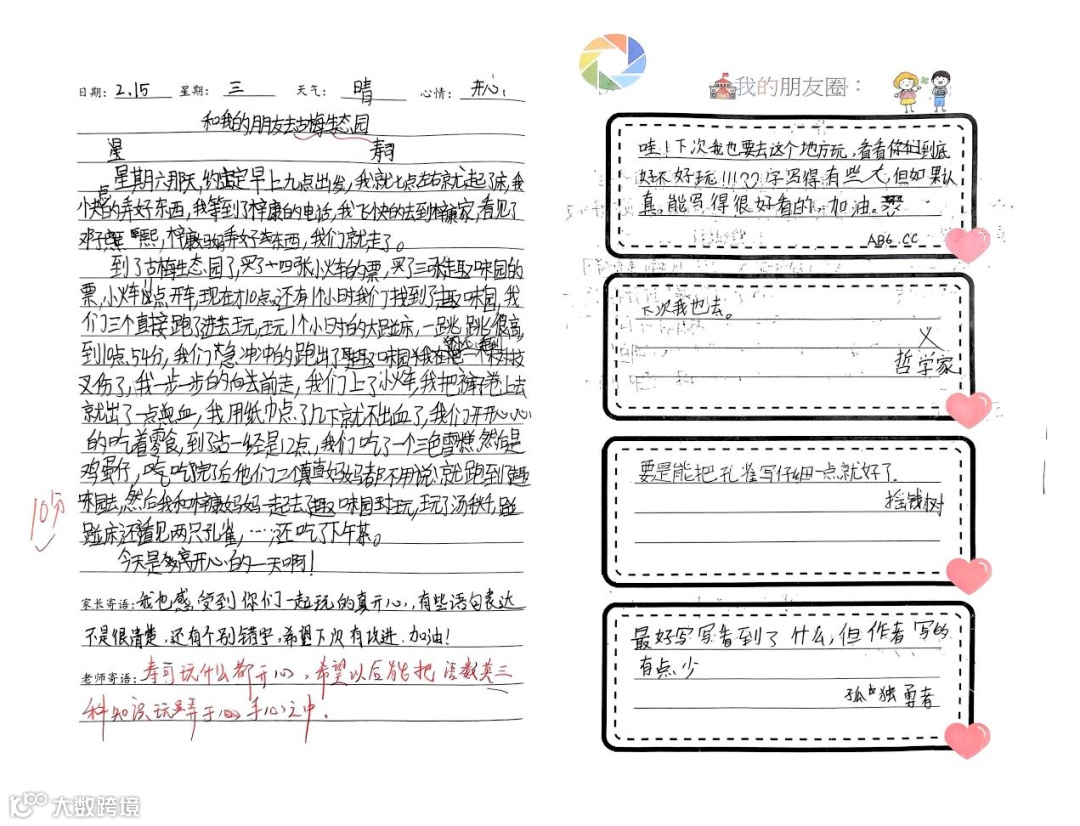 日期：2.15 星期：三 天气：晴 心情：开心
和我的朋友去古梅生态园
星 寿司
星期六那天，约定早上九点出发，我就七点左右就起了床，我
快的弄好东西，我等到了梓康的电话，我飞快的去到梓康家，看见了
邓 熙，梓康妈妈弄好东西，我们就走了。
到了古梅生态园了，买了十四张小火车的票，买了三张趣味园的
票，小火车11点开车，现在才10点，还有1个小时我们找到了趣味园，我
们三个直接跑了进去玩，玩1个小时的大蹦床，一跳跳很高
到10点54分，我们大急冲冲的跑出了趣味园 我在 一 树枝
又伤了，我一步一步的向去前走，我们上了小火车，我把裤卷上去
就出了一点点血，我用纸巾点了几下就不出血了，我们开开心心
的吃着零食，到了站一经是12点，我们吃了一个三色雪糕然后是
鸡蛋仔，吃吃完了后他们二个真真妈妈都不用说就跑到了趣
味园去，然后我和梓康妈妈一起去了趣味园玩，玩了汤秋千，蹦
蹦床，还看见两只孔雀，……还吃了下午茶。
今天是多高开心的一天啊！
10分
家长寄语：我也感受到你们一起玩的真开心，有些语句表达
不是很清楚，还有个别错字，希望下次有改进。加油！
老师寄语：寿司玩什么都开心，希望以后能把语数英三
科知识玩弄于心手心之中。
我的朋友圈：
哇！下次我也要去这个地方玩，看看你们到底
好不好玩!!!??字写得有些大，但如果认
真，能写得很好看的，加油。
AB6.CC
下次我也去。
义
哲学家
要是能把孔雀写仔细一点就好了。
摇钱树
最好写写看到了什么，但作者写的
有点少
孤独勇者
大数跨境